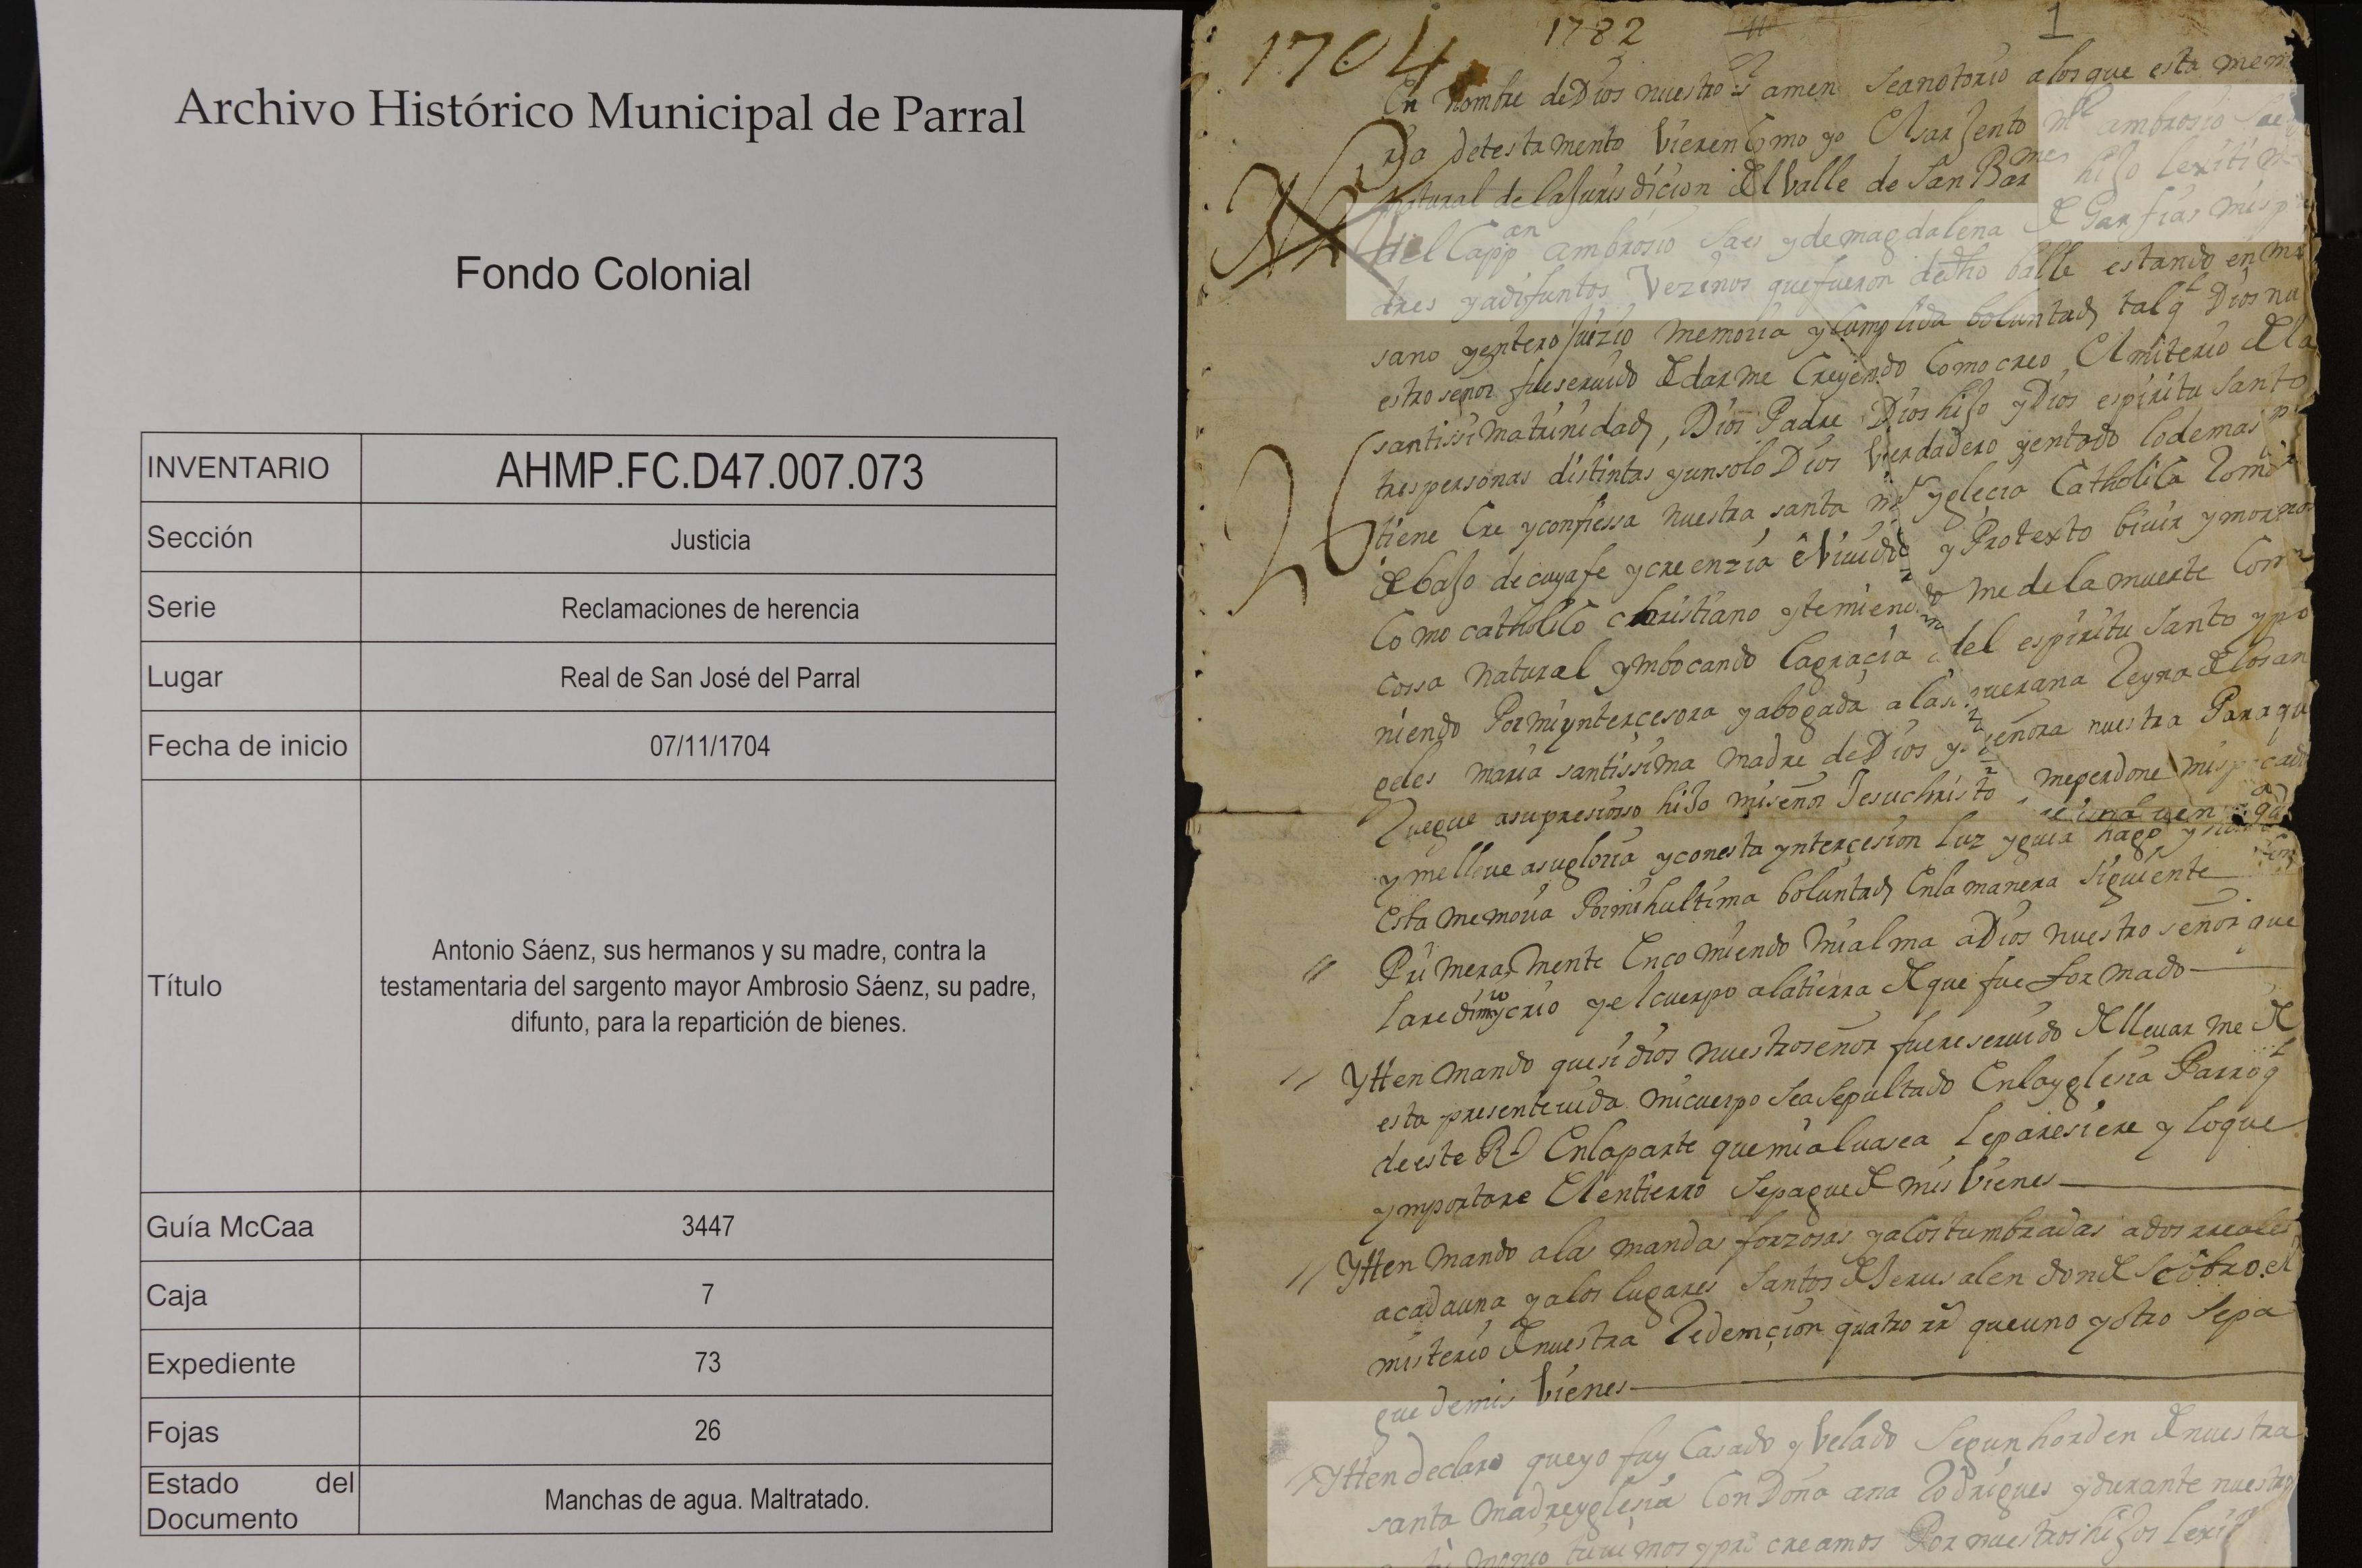 Archivo Histórico Municipal de Parral
Fondo Colonial
INVENTARIO AHMP.FC.D47.007.073
Sección Justicia
Serie Reclamaciones de herencia
Lugar Real de San José del Parral
Fecha de inicio 07/11/1704
Título Antonio Sáenz, sus hermanos y su madre, contra la
testamentaria del sargento mayor Ambrosio Sáenz, su padre,
difunto, para la repartición de bienes.
Guía McCaa 3447
Caja 7
Expediente 73
Fojas 26
Estado del
Documento Manchas de agua. Maltratado.
1704 1782 1
En nombre de Dios nuestro amen seanotorio alosque esta mem
ria detestamento vieren Como yo El sarjento mr ambrosio Saes
natural de la Jurisdicion del balle de San Barmes hijo lexitim
del Cappan ambrosio saes y de magdalena de Garfias mis p
dres yadifuntos Vezinos quefueron de dho balle estando en mi
sano yentero Juizio memoria y Cumplida boluntad, tal q Dios nu
estro señor fueseruido de darme Creyendo Como creo, El miterio de la
santissima trinidad, Dios Padre Dios hijo y Dios espiritu santo
tres personas distintas yunsolo Dios berdadero yentodo lodemas q
tiene Cre yconfiessa nuestra santa me yglecia Catholica Roma
debajo decuyafe ycreenzia e Viuido y Protexto biuir y morir
Como catholico christiano ytemiendo me dela muerte Com
cossa natural ymbocando la gracia del espiritu santo ypo
niendo Pormi yntercesora yabogada a la soverana Reyna delosan
geles maria santissima madre de Dios y señora nuestra Paraqu
Ruegue asupresiosso hijo miseñor Jesuchristo meperdone mis pecad
y melleue asugloria yconesta yntercesion luz yguia hago y
Esta memoria Pormi hultima boluntad, Enla manera siguiente
// Primeramente Encomiendo mi alma a Dios nuestro señor que
laredimio ycrio yelcuerpo alatierra de que fue formado
// Ytten mando quesi dios nuestroseñor fuereseruido de lleuar me de
esta presenteuida micuerpo sea sepultado Enlayglesia Parroql
deeste Rl Enlaparte quemialuasea leparesiere y loque
ymportare El entierro sepague de mis bienes
// Ytten mando alas mandas forzosas yacostumbradas ados rreales
acadauna yalos lugares santos de Jerusalen donde seobro el
misterio de nuestra Redemcion quatro rs queuno yotro sepa
gue demis bienes
// Ytten declaro queyo fuy Casado y Velado segun horden de nuestra
santa madreyglesia Con Doña ana Rodrigues ydurante nuestro
monio tuuimos yprocreamos Por nuestros hijos lexit